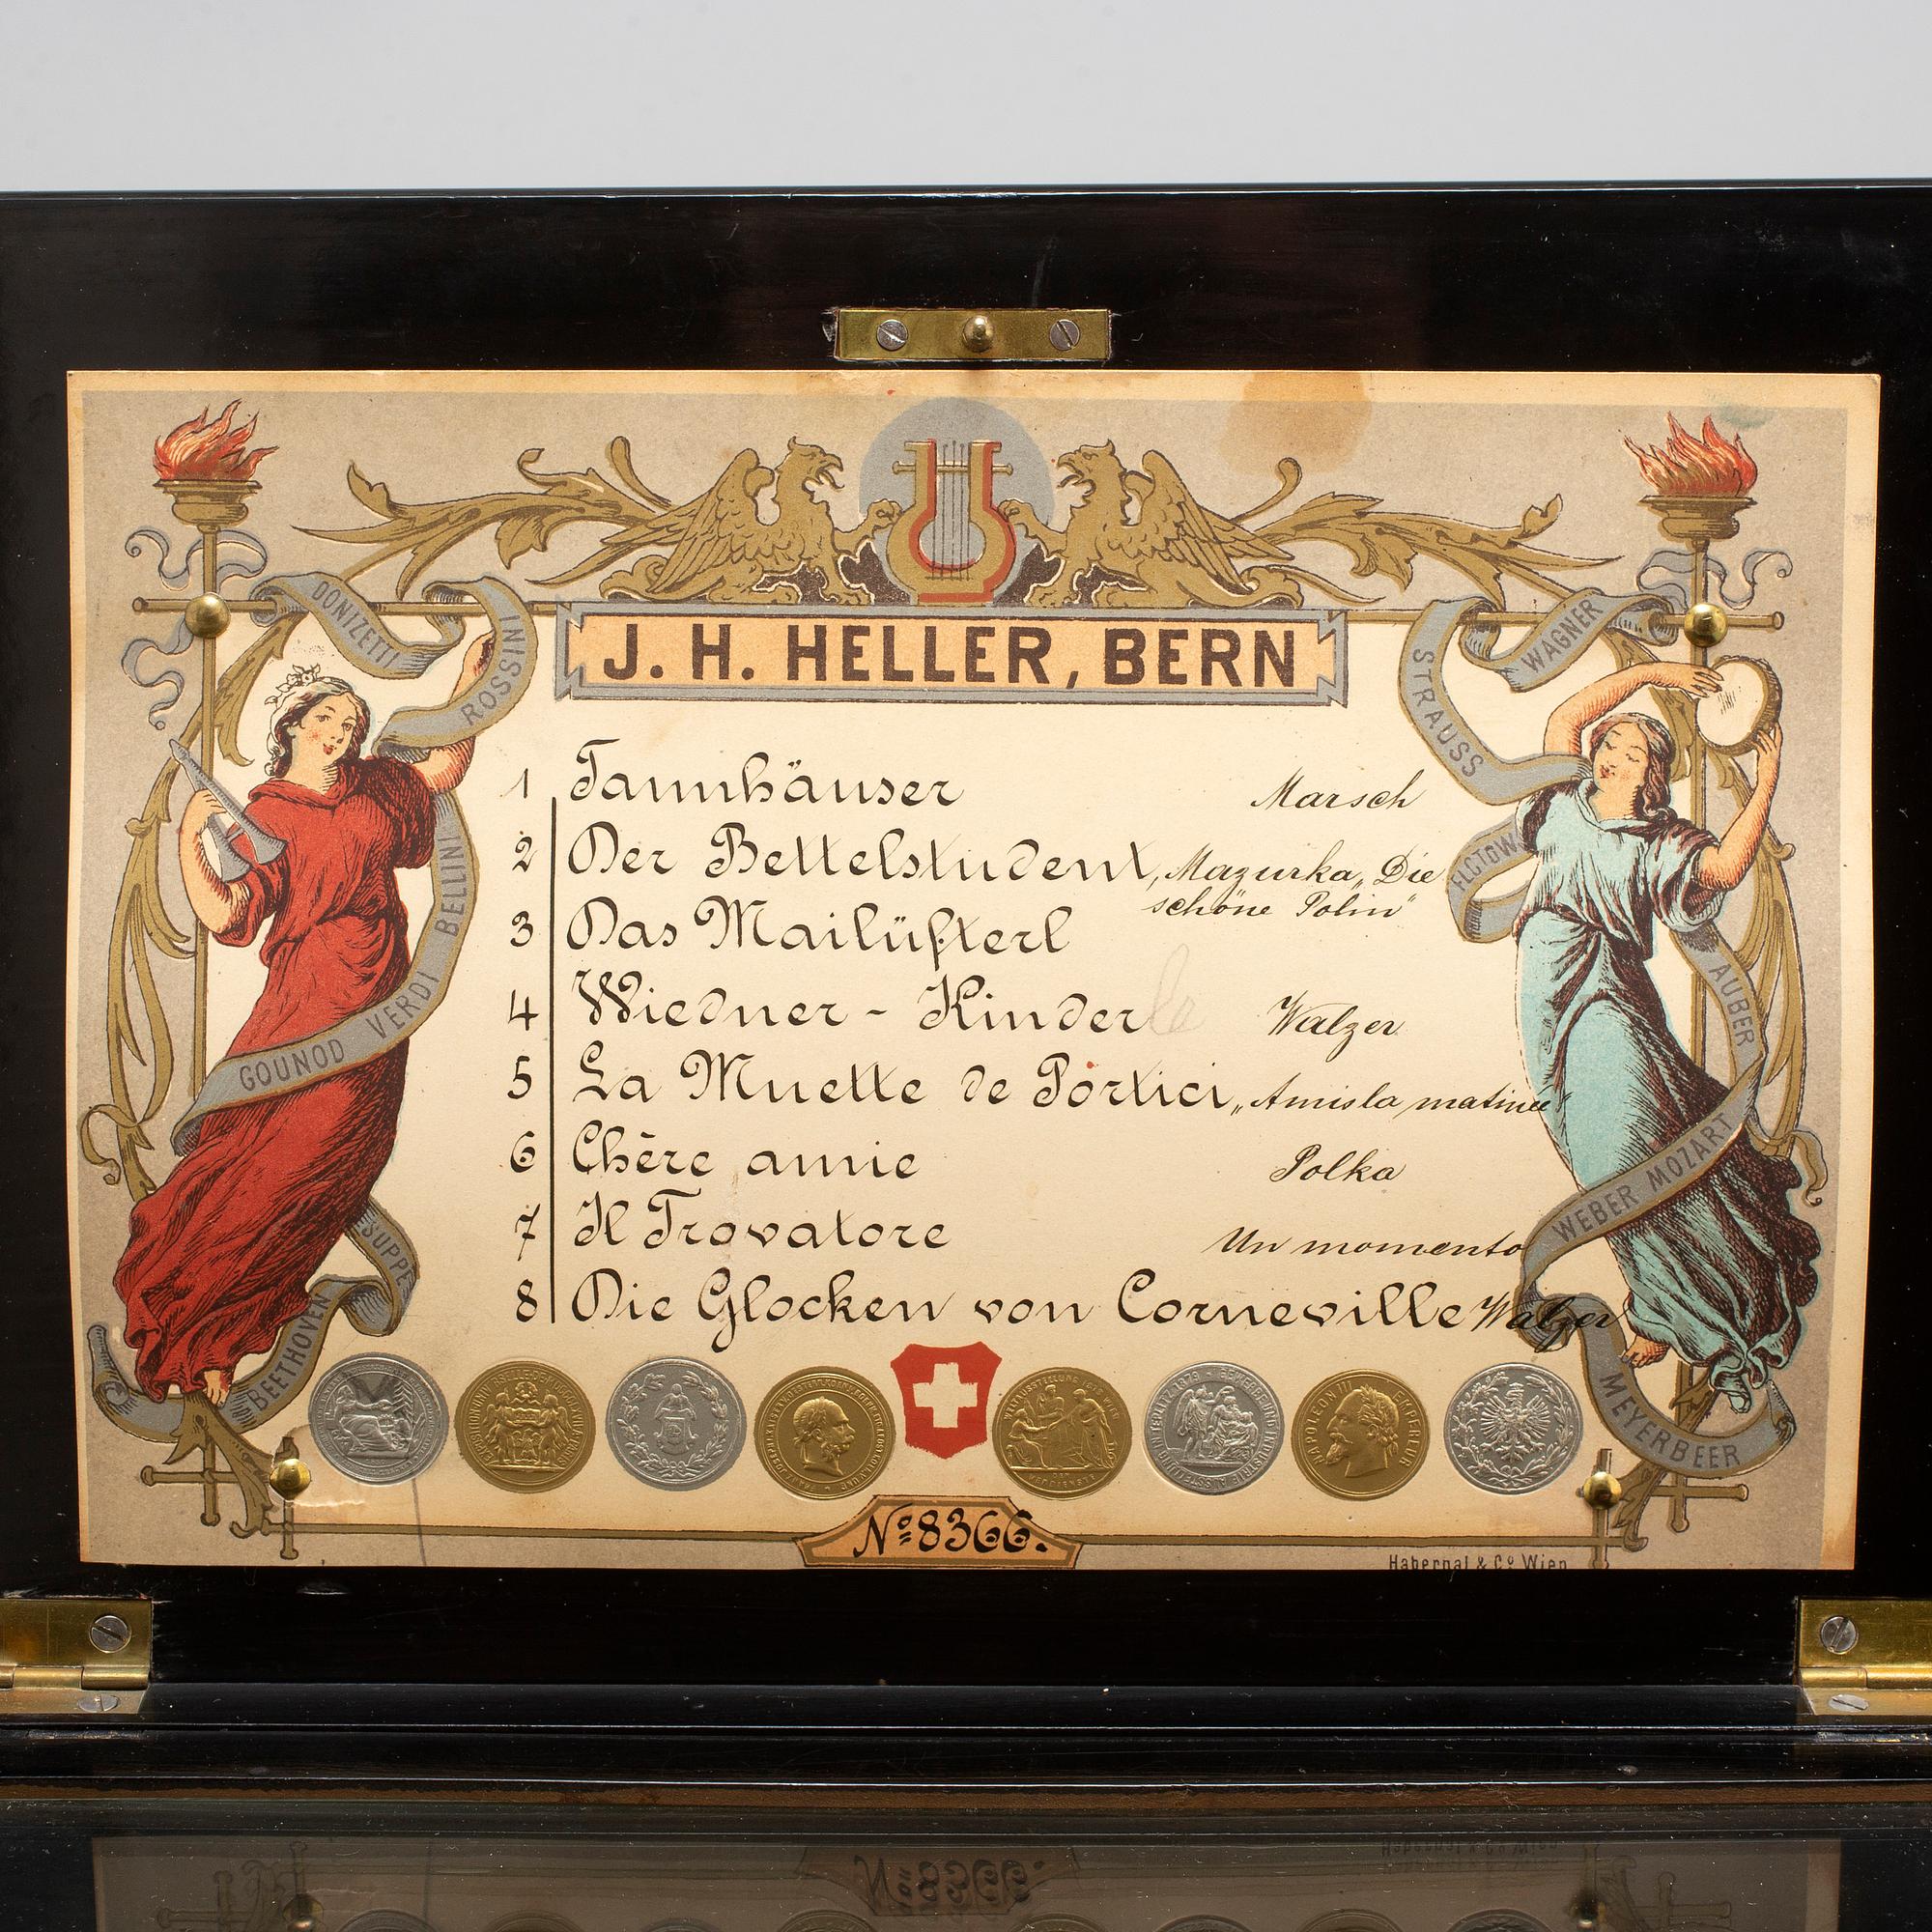 J. H. HELLER, BERN
DONIZETTI
ROSSINI
BELLINI
VERDI
GOUNOD
SUPPE
BEETHOVEN
WAGNER
STRAUSS
FLOTOW
AUBER
WEBER MOZART
MEYERBEER
1 Tannhäuser Marsch
2 Der Bettelstudent, Mazurka „Die
schöne Polin"
3 Das Mailüfterl
4 Wiedner - Kinder Walzer
5 La Muette de Portici „Amis la matinée"
6 Chère amie Polka
7 Il Trovatore Un momento
8 Die Glocken von Corneville Walzer
WELTAUSSTELLUNG 1873 WIEN
DEM VERDIENSTE
NAPOLEON III EMPEREUR
No 8366.
Habernal & Co Wien